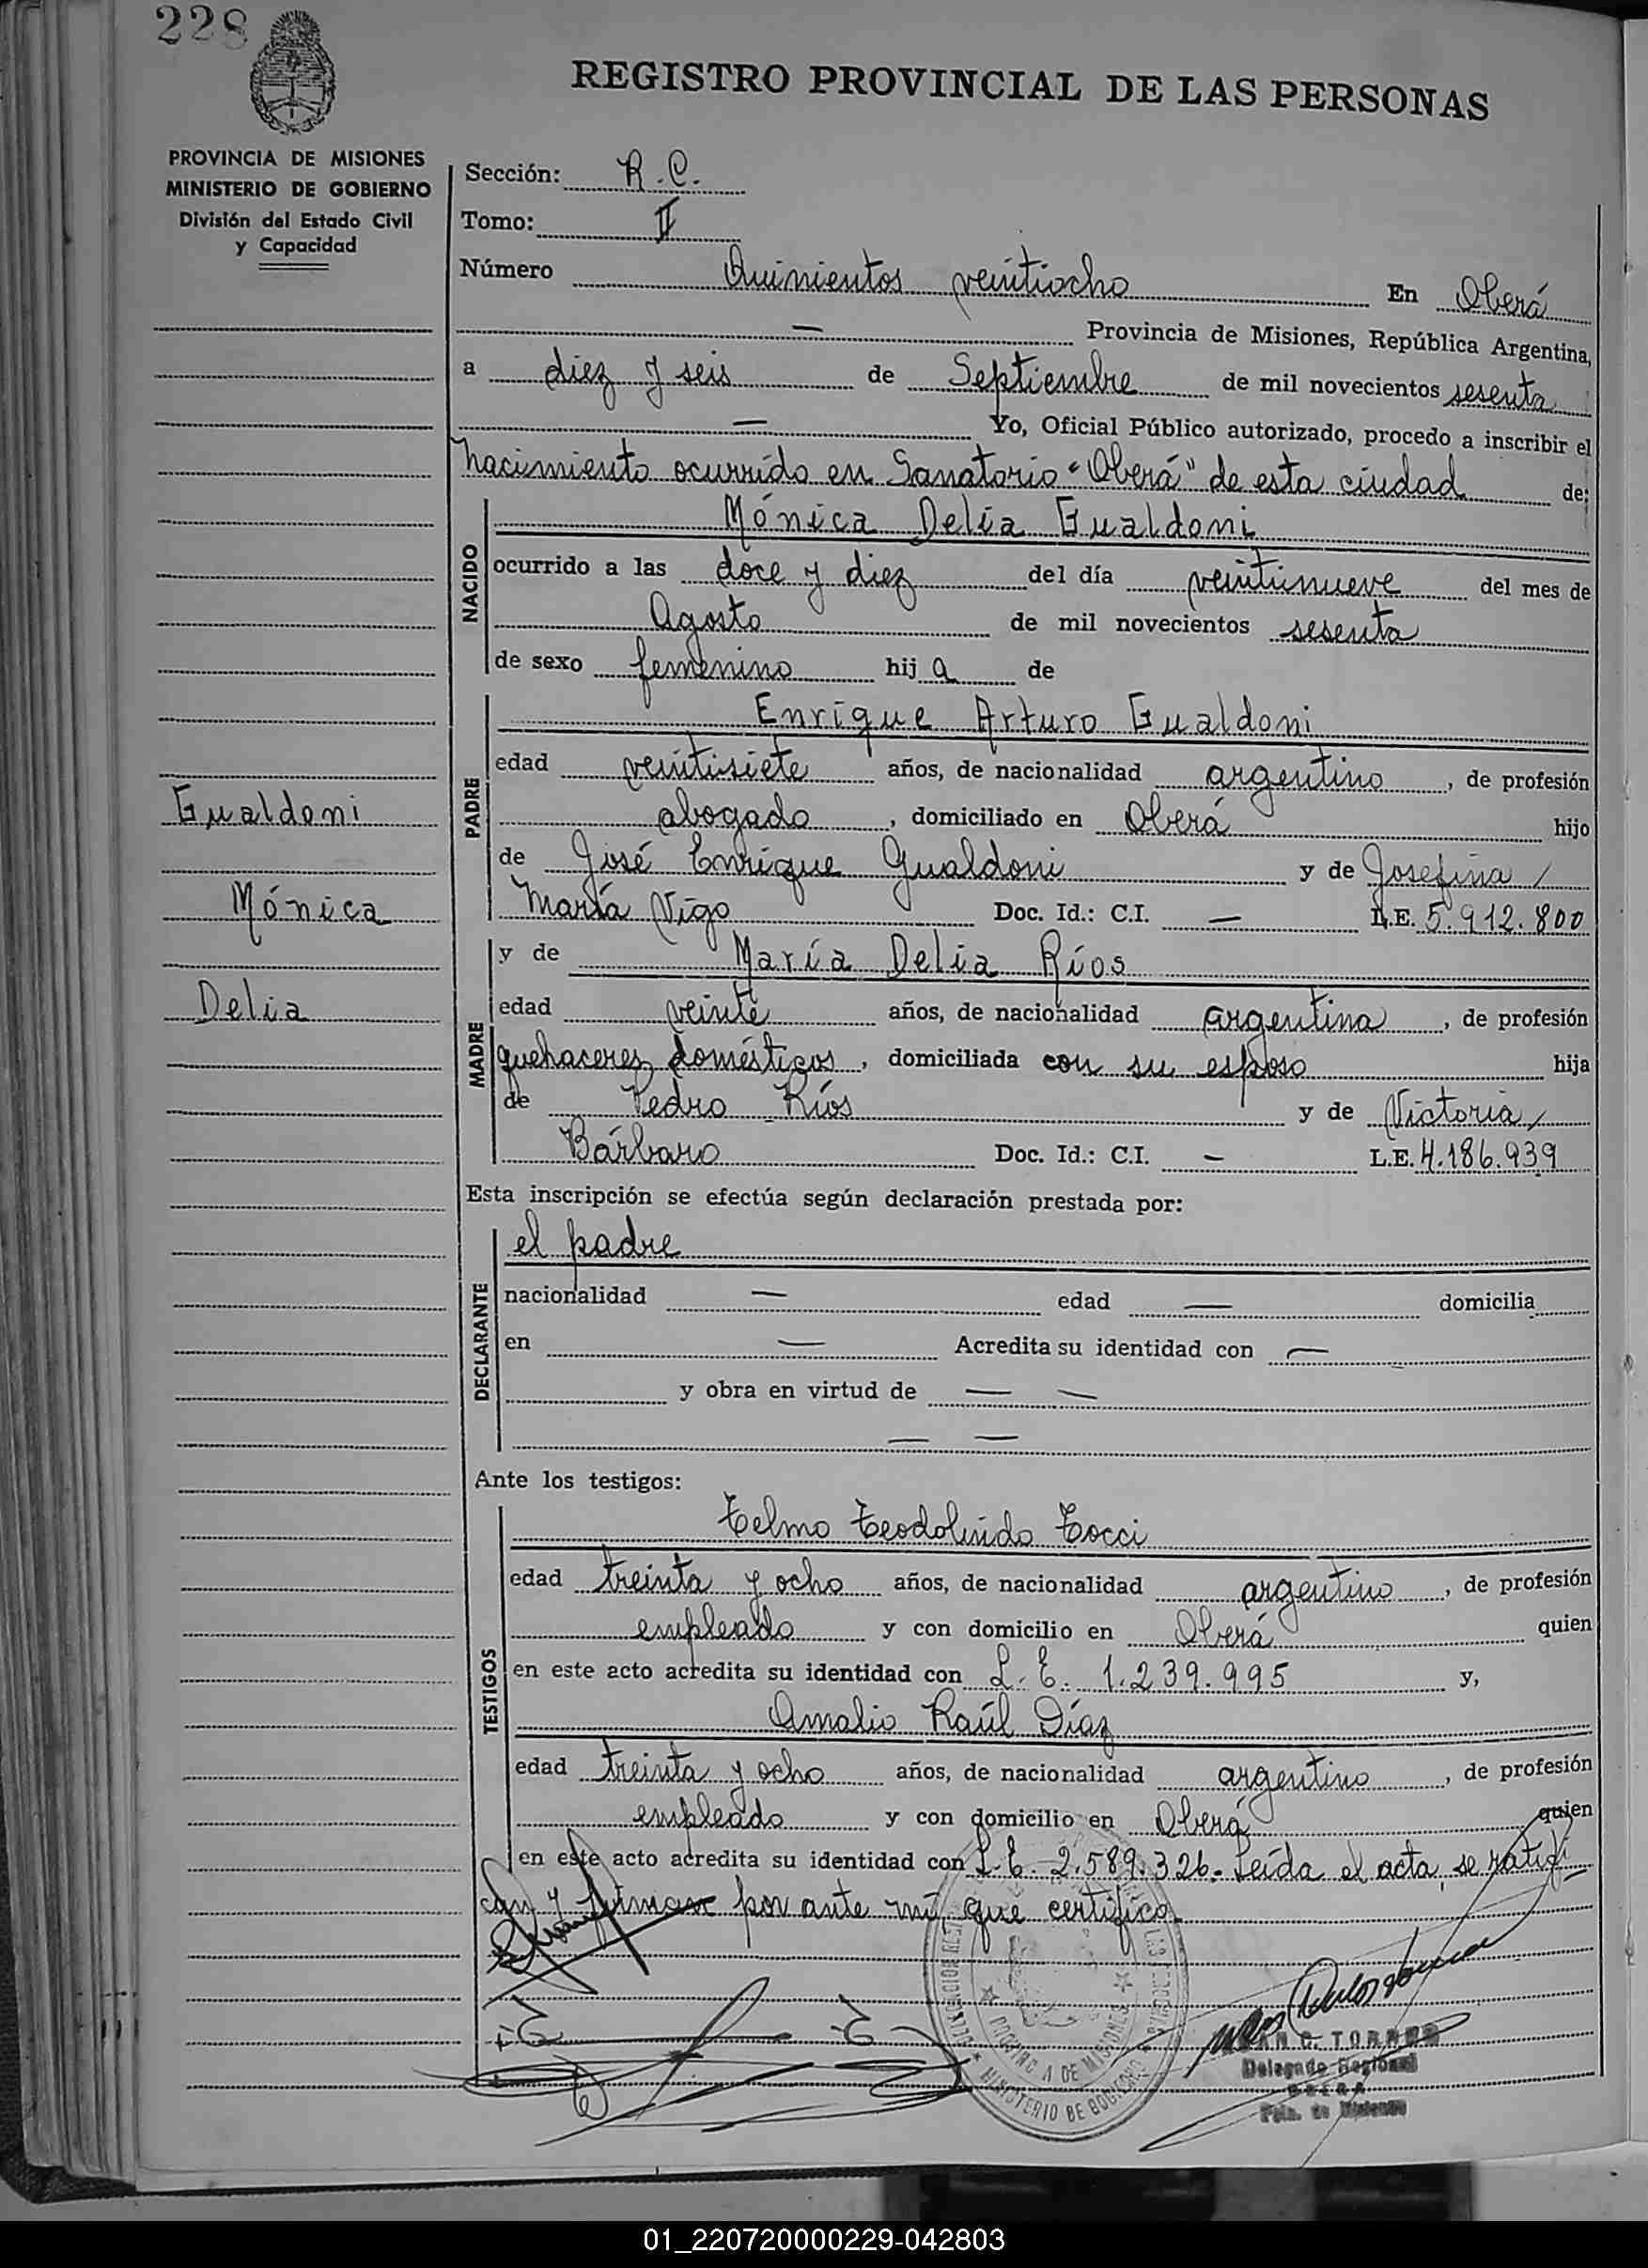 228
REGISTRO PROVINCIAL DE LAS PERSONAS
PROVINCIA DE MISIONES
MINISTERIO DE GOBIERNO
División del Estado Civil
y Capacidad
Sección: R.C.
Tomo: II
Número Quinientos veintiocho En Oberá
— Provincia de Misiones, República Argentina,
a diez y seis de Septiembre de mil novecientos sesenta
— Yo, Oficial Público autorizado, procedo a inscribir el
nacimiento ocurrido en Sanatorio "Oberá" de esta ciudad de:
NACIDO
Mónica Delia Gualdoni
ocurrido a las doce y diez del día veintinueve del mes de
Agosto de mil novecientos sesenta
de sexo femenino hij a de
PADRE
Enrique Arturo Gualdoni
edad veintisiete años, de nacionalidad argentino, de profesión
abogado, domiciliado en Oberá hijo
de José Enrique Gualdoni y de Josefina /
María Vigo Doc. Id.: C.I. — L.E. 5.912.800
Gualdoni
Mónica
Delia
MADRE
y de María Delia Ríos
edad veinte años, de nacionalidad argentina, de profesión
quehaceres domésticos, domiciliada con su esposo hija
de Pedro Ríos y de Victoria /
Bárbaro Doc. Id.: C.I. — L.E. 4.186.939
Esta inscripción se efectúa según declaración prestada por:
DECLARANTE
el padre
nacionalidad — edad — domicilia
en — Acredita su identidad con —
y obra en virtud de — —
— —
Ante los testigos:
TESTIGOS
Telmo Teodolindo Tocci
edad treinta y ocho años, de nacionalidad argentino, de profesión
empleado y con domicilio en Oberá quien
en este acto acredita su identidad con L.E. 1.239.995 y,
Amalio Raúl Díaz
edad treinta y ocho años, de nacionalidad argentino, de profesión
empleado y con domicilio en Oberá quien
en este acto acredita su identidad con L.E. 2.589.326. Leída el acta, se ratifi
can y firman por ante mí, que certifico.
PROVINCIA DE MISIONES
MINISTERIO DE GOBIERNO
C. TORRES
Delegado Regional
OBERA
Pcia. de Misiones
01_220720000229-042803